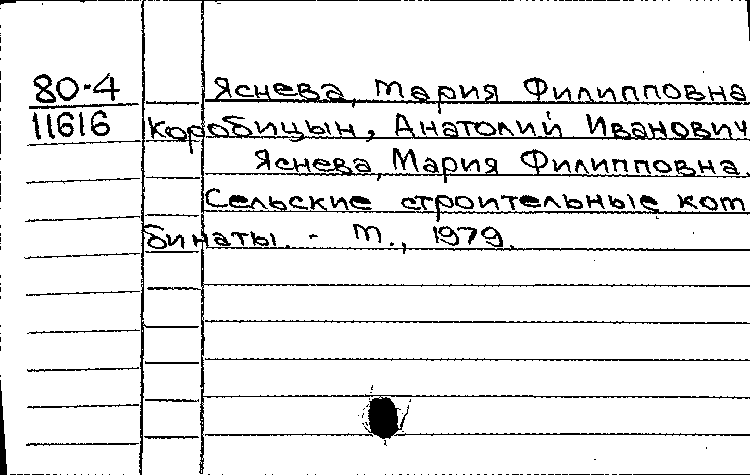 80-4 Яснева, Мария Филипповна
11616 Коробицын, Анатолий Иванович
Яснева, Мария Филипповна.
Сельские строительные ком
бинаты. - М., 1979.